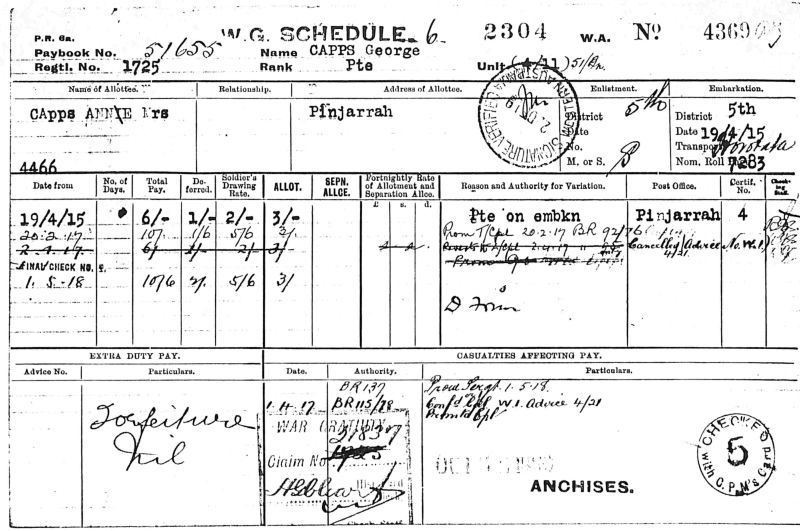 P.R. 6a. W.G. SCHEDULE. 6. 2304 W.A. No 43690
Paybook No. 51655 Name CAPPS George
Regtl. No. 1725 Rank Pte Unit (4/11) 51/Bn.
Name of Allottee. Relationship. Address of Allottee. Enlistment. Embarkation.
CApps ANNIE Mrs Pinjarrah District 5th District 5th
Date Date 19/4/15
No. Transport
M. or S. S Nom. Roll 7283
SIGNATURE VERIFIED WESTERN AUSTRALIA
4466
Date from No. of Days. Total Pay. Deferred. Soldier's Drawing Rate. ALLOT. SEPN. ALLCE. Fortnightly Rate of Allotment and Separation Allce. Reason and Authority for Variation. Post Office. Certif. No. Checking Staff.
£ s. d.
19/4/15 6/- 1/- 2/- 3/- Pte on embkn Pinjarrah 4
20.2.17 10/. 1/6 5/6 3/ Prom T/Cpl 20.2.17 BR 92/76
2.4.17 6/ 1/- 2/- 3/ Cancelled Advice No. W.1.
4/21
FINAL CHECK NO.
1.5-18 10/6 2/. 5/6 3/
D From
EXTRA DUTY PAY. CASUALTIES AFFECTING PAY.
Advice No. Particulars. Date. Authority. Particulars.
BR137 Prom Sergt. 1.5.18.
1.4.17 BR115/78 Conf'd Cpl W.1. Advice 4/21
Forfeiture
Nil
WAR GRATUITY
31837
Claim No. 1725
ANCHISES.
CHECKED
5
with C.P.M's